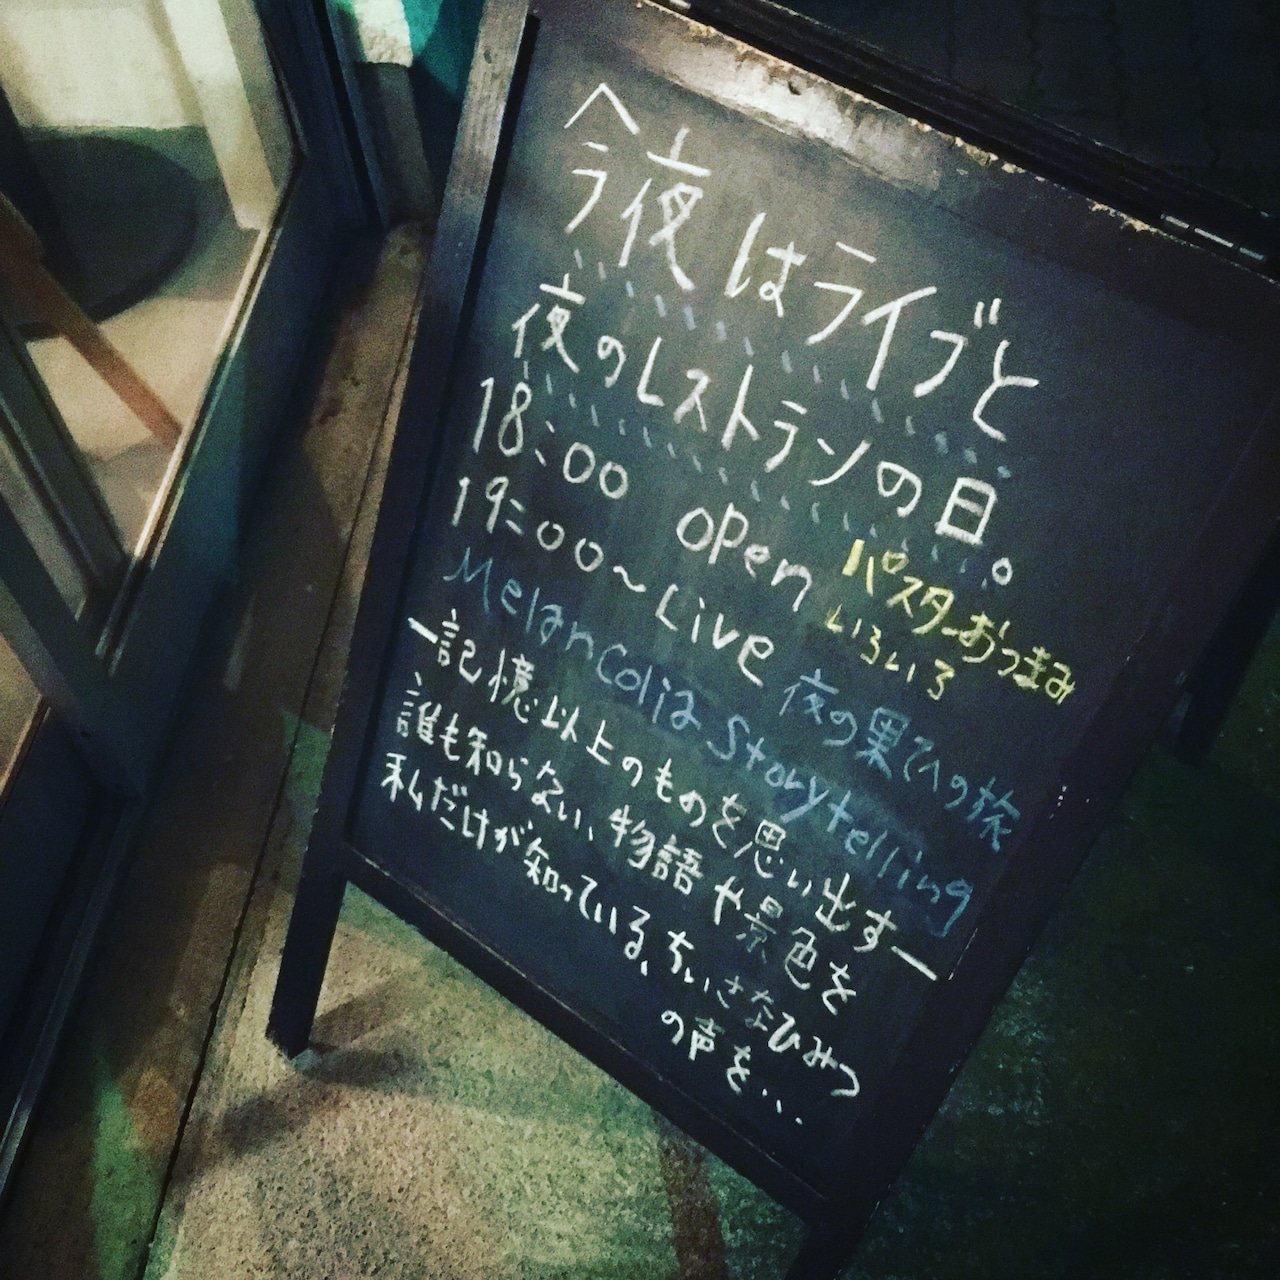 今夜はライブと
夜のレストランの日。
18:00 open
パスターおつまみ
いろいろ
19:00〜Live
夜の果ての旅
Melancolia Storytelling
ー記憶以上のものを思い出すー
誰も知らない、物語や景色を
私だけが知っている、ちいさなひみつ
の声を...